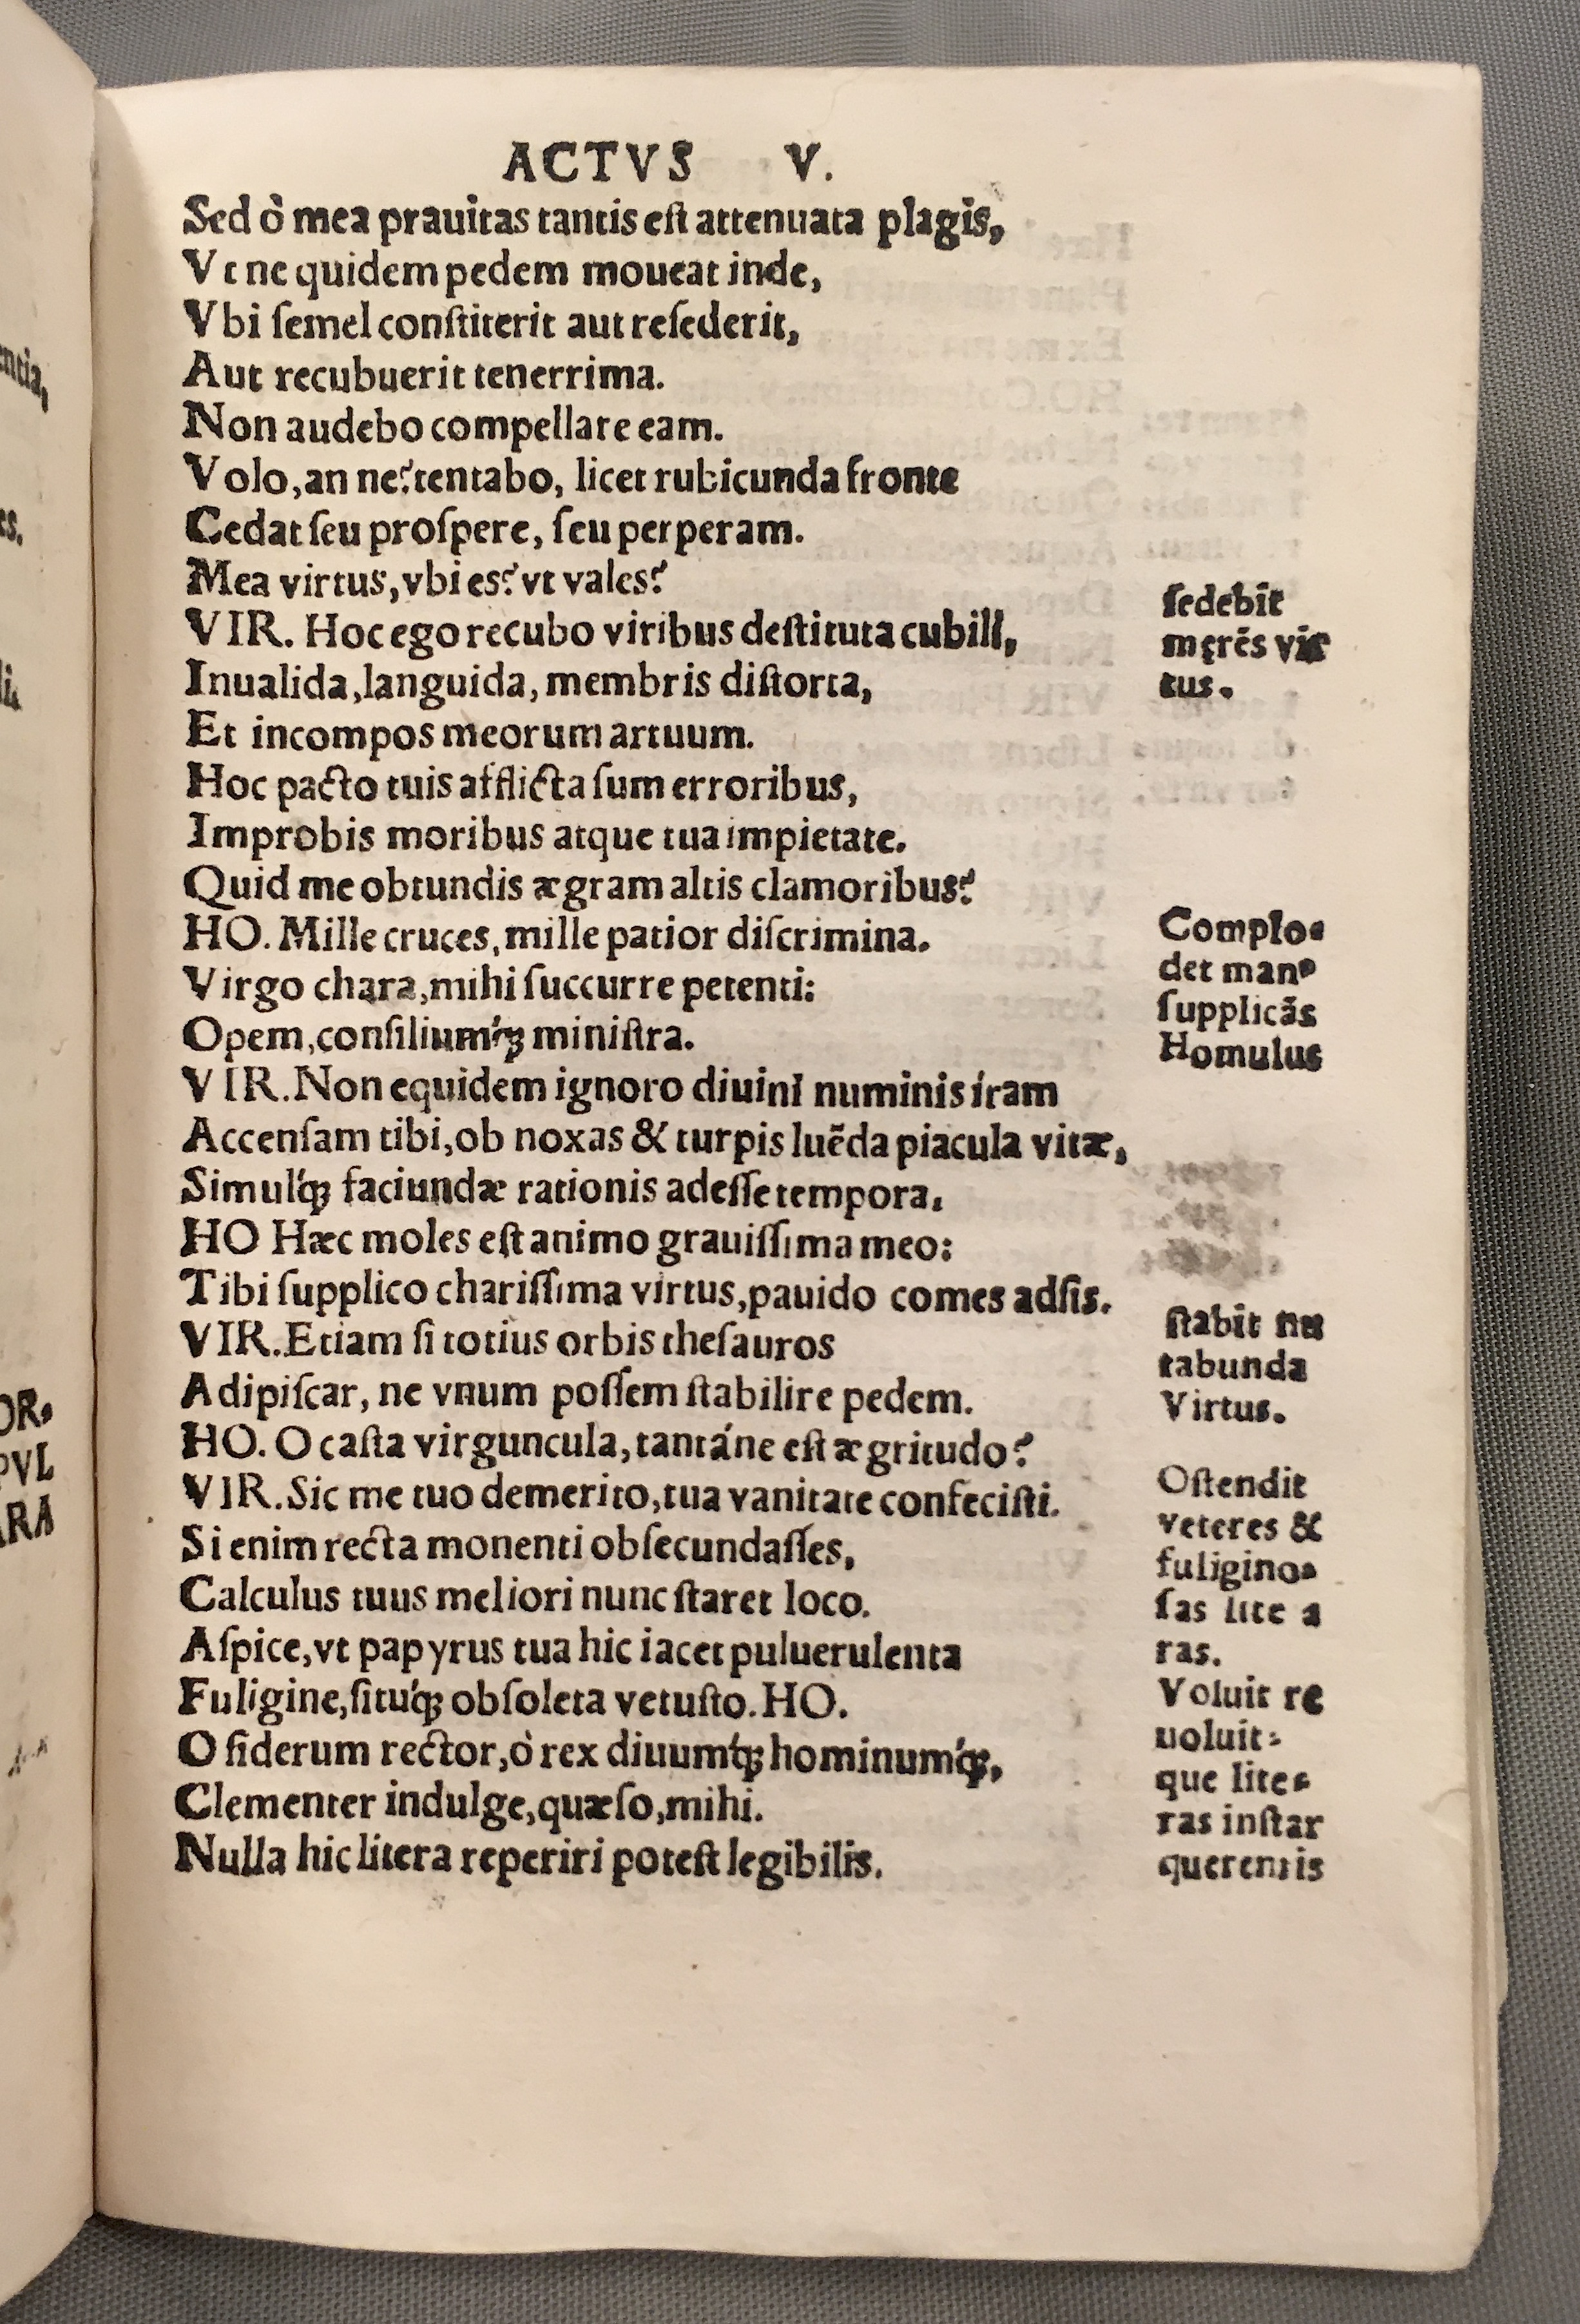 ACTVS V.
Sed ò mea prauitas tantis eſt attenuata plagis,
Vt ne quidem pedem moueat inde,
Vbi ſemel conſtiterit aut reſederit,
Aut recubuerit tenerrima.
Non audebo compellare eam.
Volo, an ne? tentabo, licet rubicunda fronte
Cedat ſeu proſpere, ſeu perperam.
Mea virtus, vbi es? vt vales?
VIR. Hoc ego recubo viribus deſtituta cubili,
Inualida, languida, membris diſtorta,
Et incompos meorum artuum.
Hoc pacto tuis afflicta ſum erroribus,
Improbis moribus atque tua impietate.
Quid me obtundis ægram altis clamoribus?
HO. Mille cruces, mille patior diſcrimina.
Virgo chara, mihi ſuccurre petenti:
Opem, conſiliumq́ꝫ miniſtra.
VIR. Non equidem ignoro diuini numinis iram
Accenſam tibi, ob noxas & turpis luēda piacula vitæ,
Simulq́ꝫ faciundæ rationis adeſſe tempora,
HO Hæc moles eſt animo grauiſſima meo:
Tibi ſupplico chariſſima virtus, pauido comes adſis.
VIR. Etiam ſi totius orbis theſauros
Adipiſcar, ne vnum poſſem ſtabilire pedem.
HO. O caſta virguncula, tantáne eſt ægritudo?
VIR. Sic me tuo demerito, tua vanitate confeciſti.
Si enim recta monenti obſecundaſſes,
Calculus tuus meliori nunc ſtaret loco.
Aſpice, vt papyrus tua hic iacet puluerulenta
Fuligine, ſituq́ꝫ obſoleta vetuſto. HO.
O ſiderum rector, ò rex diuumq́ꝫ hominumq́ꝫ,
Clementer indulge, quæſo, mihi.
Nulla hic litera reperiri poteſt legibilis.
ſedebit
męrēs vir
tus.
Complo-
det manꝰ
ſupplicās
Homulus
ſtabit nu
tabunda
Virtus.
Oſtendit
veteres &
fuligino-
ſas lite a
ras.
Voluit re
uoluit-
que lite-
ras inſtar
querentis
entia,
es.
li,
OR-
PVL
ARA